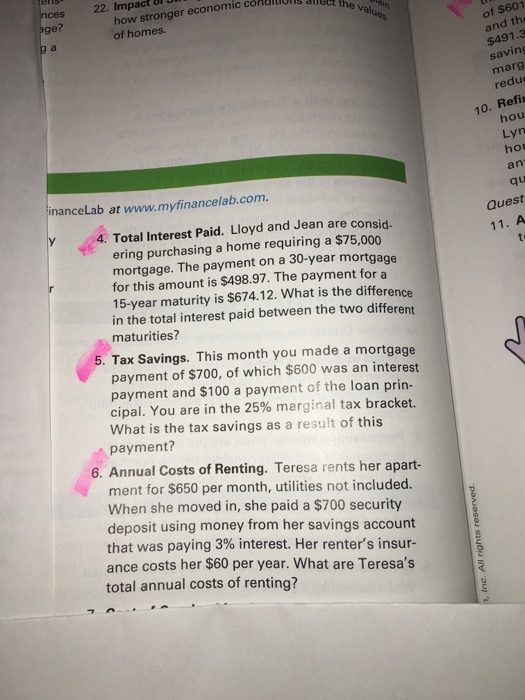 nces
age?
g a
22. Impact
how stronger economic conditions affect the values
of homes.
inanceLab at www.myfinancelab.com.
y
r
4. Total Interest Paid. Lloyd and Jean are consid-
ering purchasing a home requiring a $75,000
mortgage. The payment on a 30-year mortgage
for this amount is $498.97. The payment for a
15-year maturity is $674.12. What is the difference
in the total interest paid between the two different
maturities?
5. Tax Savings. This month you made a mortgage
payment of $700, of which $600 was an interest
payment and $100 a payment of the loan prin-
cipal. You are in the 25% marginal tax bracket.
What is the tax savings as a result of this
payment?
6. Annual Costs of Renting. Teresa rents her apart-
ment for $650 per month, utilities not included.
When she moved in, she paid a $700 security
deposit using money from her savings account
that was paying 3% interest. Her renter's insur-
ance costs her $60 per year. What are Teresa's
total annual costs of renting?
of $601
and th
$491.3
saving
marg
redu
10. Refi
hou
Lyn
ho
an
qu
Quest
11. A
t
n, Inc. All rights reserved.